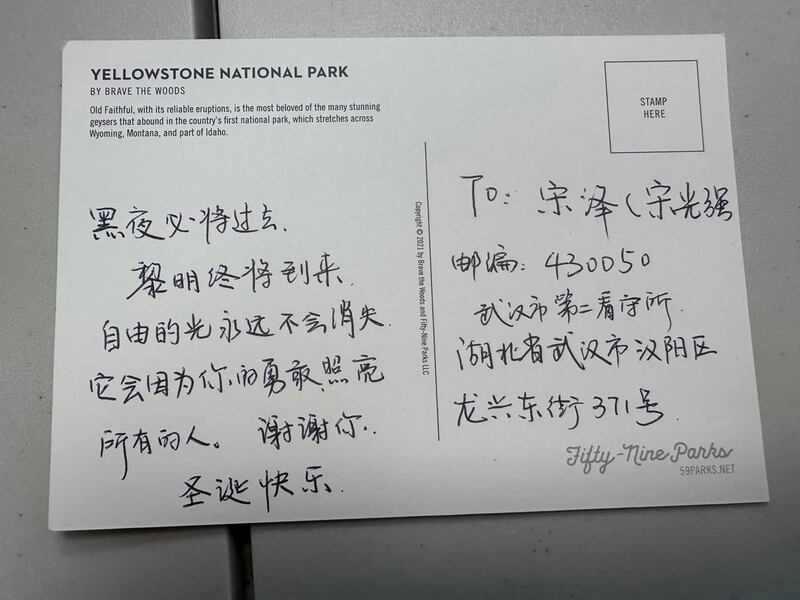 YELLOWSTONE NATIONAL PARK
BY BRAVE THE WOODS
Old Faithful, with its reliable eruptions, is the most beloved of the many stunning
geysers that abound in the country's first national park, which stretches across
Wyoming, Montana, and part of Idaho.
STAMP
HERE
黑夜必将过去.
黎明终将到来.
自由的光永远不会消失.
它会因为你的勇敢照亮
所有的人。谢谢你.
圣诞快乐.
Copyright © 2021 by Brave the Woods and Fifty-Nine Parks LLC
To: 宋泽(宋光强
邮编: 430050
武汉市第二看守所.
湖北省武汉市汉阳区
龙兴东街371号.
Fifty-Nine Parks
59PARKS.NET